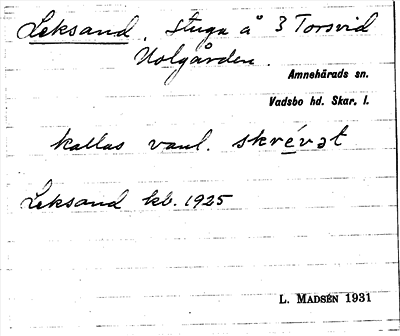 Leksand. stuga å 3 Torsvid
Uolgården.
Amnehärads sn.
Vadsbo hd. Skar. l.
kallas vanl. skrévət
Leksand kb. 1925
L. Madsén 1931